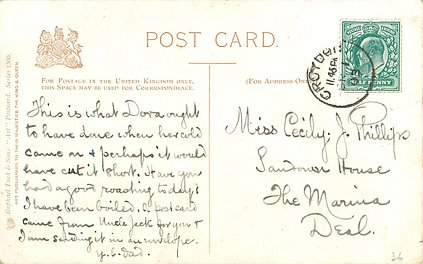 POST CARD.
FOR POSTAGE IN THE UNITED KINGDOM ONLY,
THIS SPACE MAY BE USED FOR CORRESPONDENCE.
(FOR ADDRESS ONLY
CROYDON
11.45 AM
HALFPENNY
Raphael Tuck & Sons' "Art" Postcard, Series 1900.
ART PUBLISHERS TO THEIR MAJESTIES THE KING & QUEEN.
This is what Dora ought
to have done when her cold
came on & perhaps it would
have cut it short. Have you
had a good roasting to-day?
I have been boiled. A post card
came from Uncle Jack for you &
I am sending it in an envelope.
y. l. Dad.
Miss Cecily. J. Phillips
Sandown House
The Marina
Deal.
36